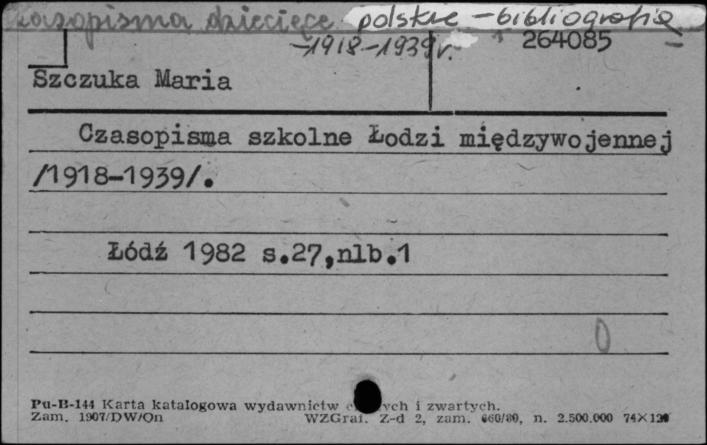 czasopisma dziecięce polskie – bibliografia
– 1918 – 1939 r.
264085
Szczuka Maria
Czasopisma szkolne Łodzi międzywojennej
/1918-1939/.
Łódź 1982 s.27,nlb.1
0
Pu-B-144 Karta katalogowa wydawnictw i zwartych.
Zam. 1907/DW/On WZGraf. Z-d 2, zam. 660/80, n. 2.500.000 74×124